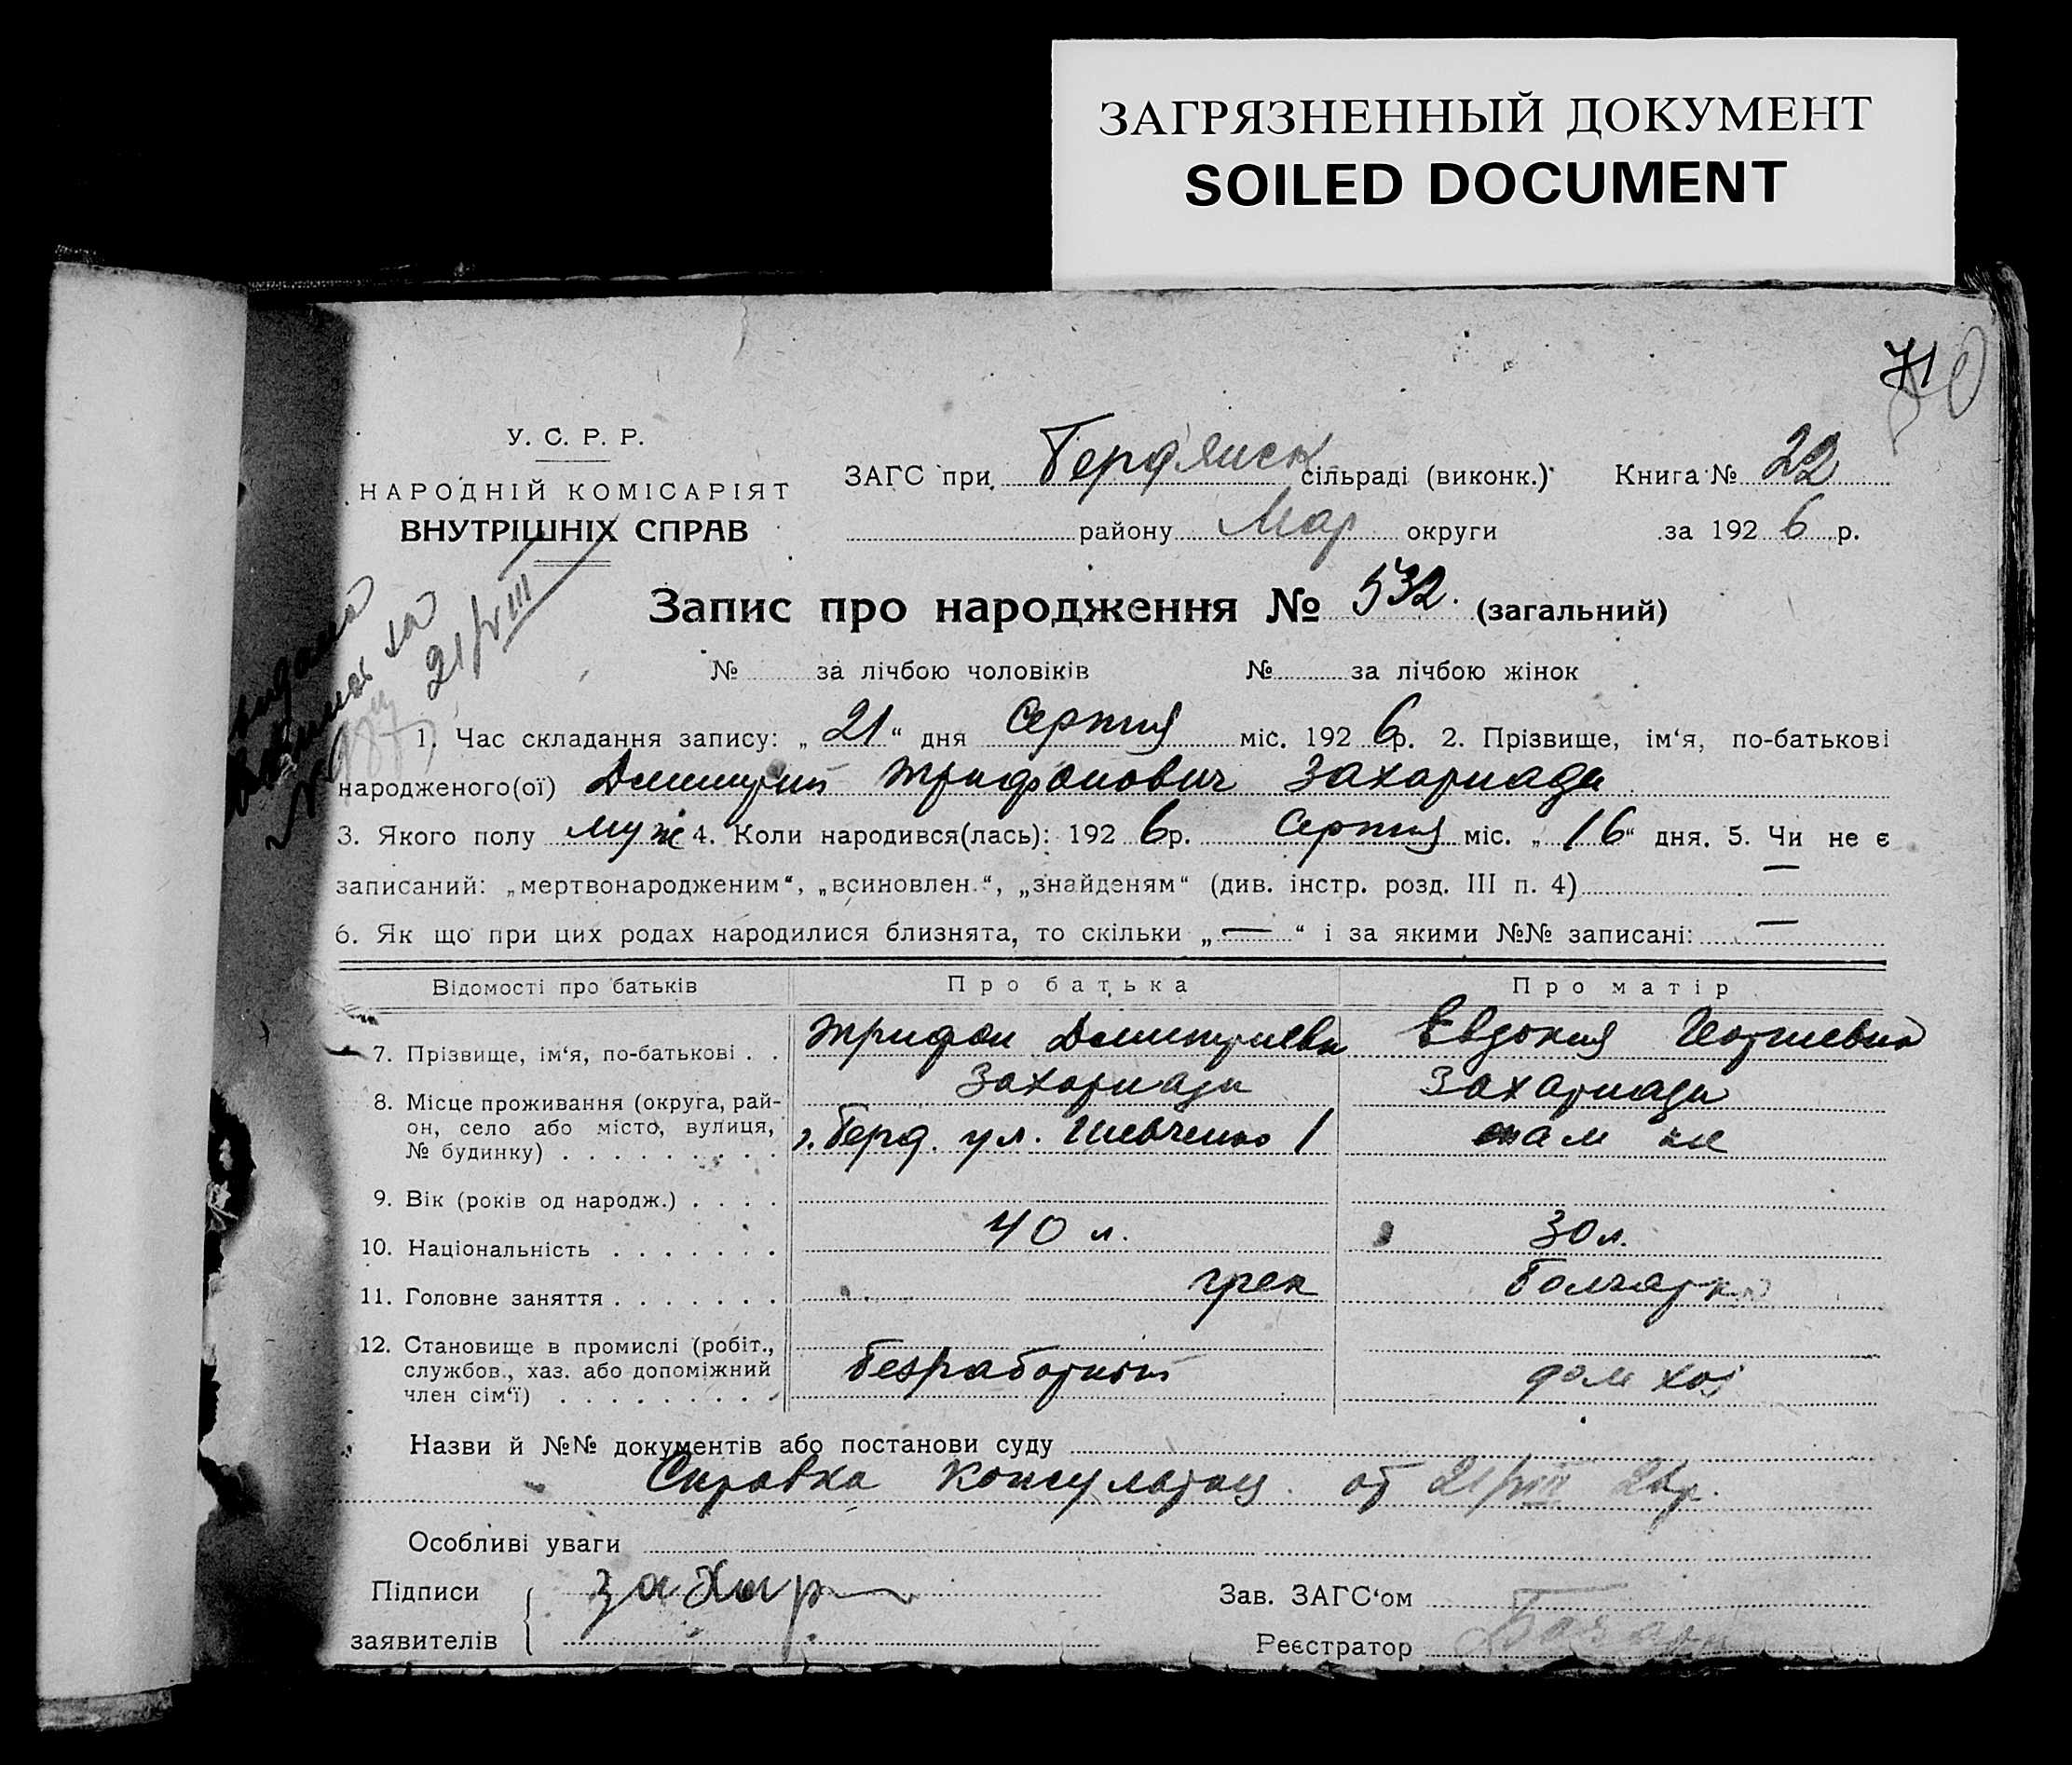 ЗАГРЯЗНЕННЫЙ ДОКУМЕНТ
SOILED DOCUMENT
71
У. С. Р. Р.
НАРОДНІЙ КОМІСАРІЯТ
ВНУТРІШНІХ СПРАВ
ЗАГС при Бердянск сільраді (виконк.) Книга № 22
району Мар округи за 1926 р.
21/VIII
Запис про народження № 532. (загальний)
№ за лічбою чоловіків № за лічбою жінок
1. Час складання запису: „21“ дня Серпня міс. 1926р. 2. Прізвище, ім‘я, по-батькові
народженого(ої) Димитрий Трифонович Захариади
3. Якого полу муж 4. Коли народився(лась): 1926р. Серпня міс. „16“ дня. 5. Чи не є
записаний: „мертвонародженим“, „всиновлен.“, „знайденям“ (див. інстр. розд. III п. 4) —
6. Як що при цих родах народилися близнята, то скільки „—“ і за якими №№ записані: —
Відомості про батьків Про батька Про матір
7. Прізвище, ім‘я, по-батькові . . Трифон Димитриеви Евдокия
Захариади Захариади
8. Місце проживання (округа, рай-
он, село або місто, вулиця,
№ будинку) . . . . . . . . . г. Берд. ул. Шевченко 1 там же
9. Вік (років од народж.) . . . . 40 л. 30 л.
10. Національність . . . . . . . грек Болгарка
11. Головне заняття . . . . . . .
12. Становище в промислі (робіт.,
службов., хаз. або допоміжний
член сім‘ї) . . . . . . . . . безработный дом хоз
Назви й №№ документів або постанови суду
Справка Консультац. от 21/VIII 26г.
Особливі уваги
Підписи Захар
заявителів
Зав. ЗАГС‘ом
Реєстратор